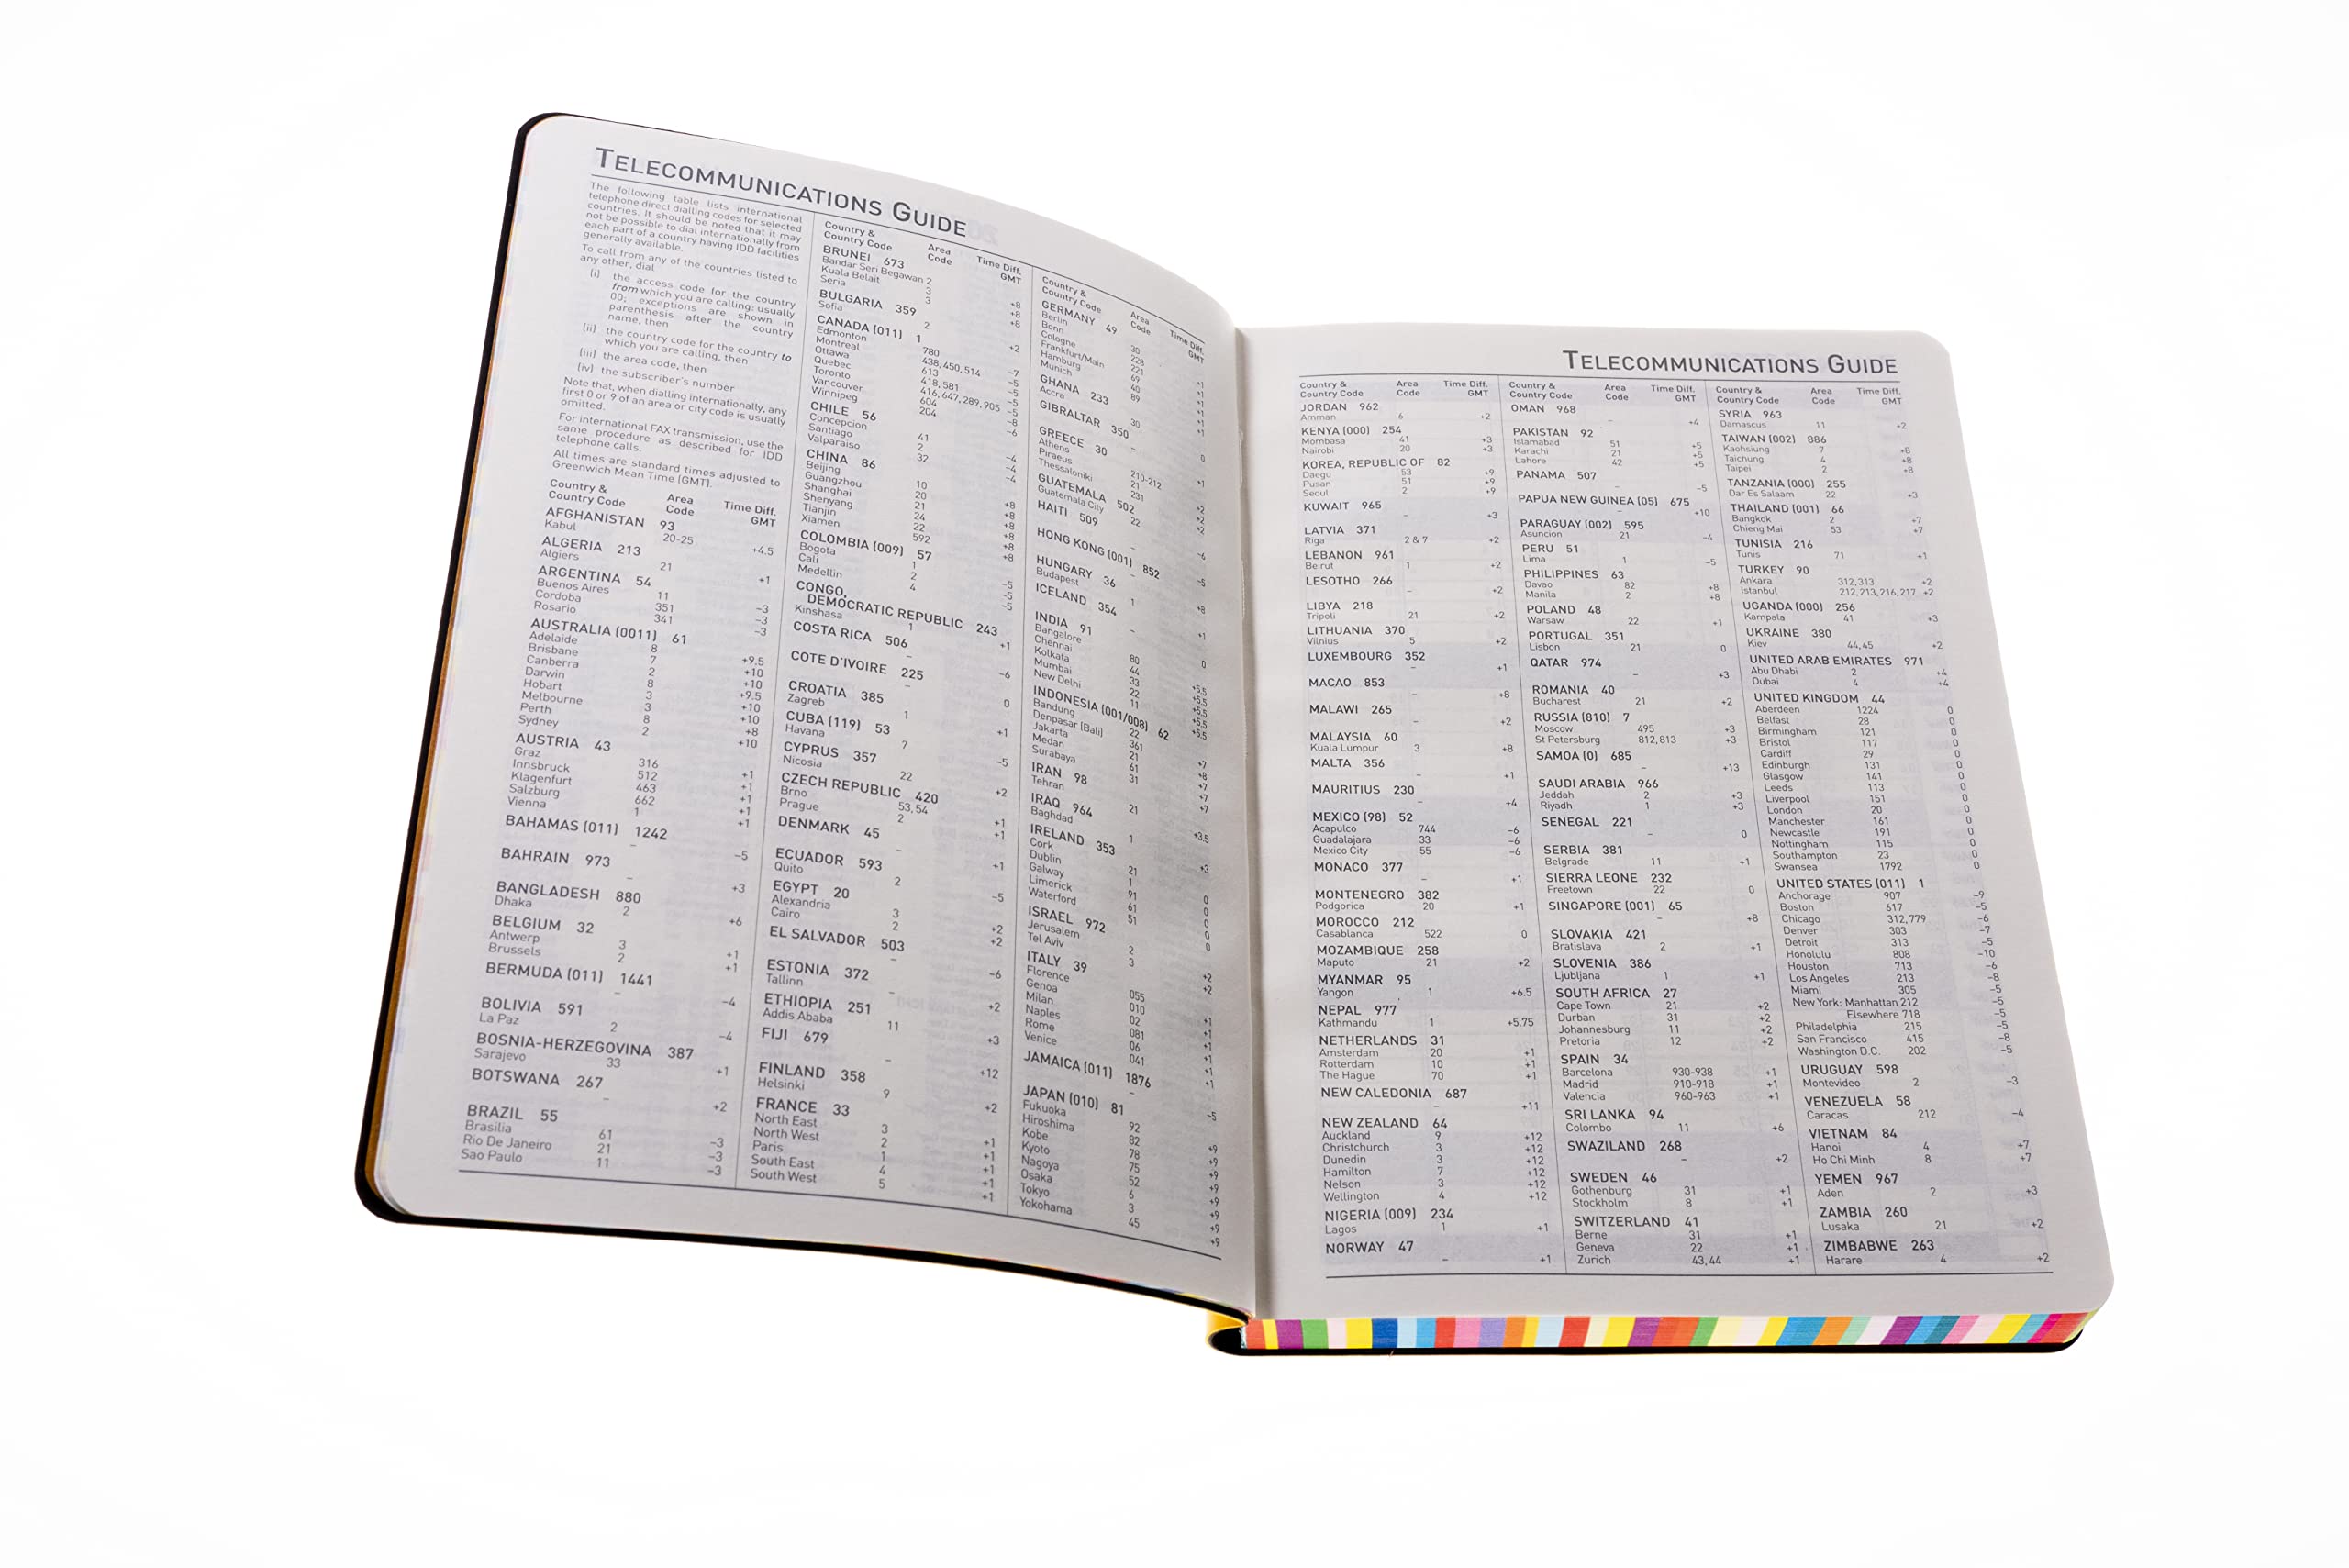 TELECOMMUNICATIONS GUIDE
The following table lists international
telephone direct dialling codes for selected
countries. It should be noted that it may
not be possible to dial internationally from
each part of a country having IDD facilities
generally available.
To call from any of the countries listed to
any other, dial
(i) the access code for the country
from which you are calling: usually
00; exceptions are shown in
parenthesis after the country
name, then
(ii) the country code for the country to
which you are calling, then
(iii) the area code, then
(iv) the subscriber's number
Note that, when dialling internationally, any
first 0 or 9 of an area or city code is usually
omitted.
For international FAX transmission, use the
same procedure as described for IDD
telephone calls.
All times are standard times adjusted to
Greenwich Mean Time (GMT).
Country & Area Time Diff.
Country Code Code GMT
AFGHANISTAN 93
Kabul 20-25 +4.5
ALGERIA 213
Algiers 21 +1
ARGENTINA 54
Buenos Aires 11 –3
Cordoba 351 –3
Rosario 341 –3
AUSTRALIA (0011) 61
Adelaide 8 +9.5
Brisbane 7 +10
Canberra 2 +10
Darwin 8 +9.5
Hobart 3 +10
Melbourne 3 +10
Perth 8 +8
Sydney 2 +10
AUSTRIA 43
Graz 316 +1
Innsbruck 512 +1
Klagenfurt 463 +1
Salzburg 662 +1
Vienna 1 +1
BAHAMAS (011) 1242
– –5
BAHRAIN 973
– +3
BANGLADESH 880
Dhaka 2 +6
BELGIUM 32
Antwerp 3 +1
Brussels 2 +1
BERMUDA (011) 1441
– –4
BOLIVIA 591
La Paz 2 –4
BOSNIA-HERZEGOVINA 387
Sarajevo 33 +1
BOTSWANA 267
– +2
BRAZIL 55
Brasilia 61 –3
Rio De Janeiro 21 –3
Sao Paulo 11 –3
Country & Area Time Diff.
Country Code Code GMT
BRUNEI 673
Bandar Seri Begawan 2 +8
Kuala Belait 3 +8
Seria 3 +8
BULGARIA 359
Sofia 2 +2
CANADA (011) 1
Edmonton 780 –7
Montreal 438,450,514 –5
Ottawa 613 –5
Quebec 418,581 –5
Toronto 416,647,289,905 –5
Vancouver 604 –8
Winnipeg 204 –6
CHILE 56
Concepcion 41 –4
Santiago 2 –4
Valparaiso 32 –4
CHINA 86
Beijing 10 +8
Guangzhou 20 +8
Shanghai 21 +8
Shenyang 24 +8
Tianjin 22 +8
Xiamen 592 +8
COLOMBIA (009) 57
Bogota 1 –5
Cali 2 –5
Medellin 4 –5
CONGO,
DEMOCRATIC REPUBLIC 243
Kinshasa 1 +1
COSTA RICA 506
– –6
COTE D'IVOIRE 225
– 0
CROATIA 385
Zagreb 1 +1
CUBA (119) 53
Havana 7 –5
CYPRUS 357
Nicosia 22 +2
CZECH REPUBLIC 420
Brno 53,54 +1
Prague 2 +1
DENMARK 45
– +1
ECUADOR 593
Quito 2 –5
EGYPT 20
Alexandria 3 +2
Cairo 2 +2
EL SALVADOR 503
– –6
ESTONIA 372
Tallinn – +2
ETHIOPIA 251
Addis Ababa 11 +3
FIJI 679
– +12
FINLAND 358
Helsinki 9 +2
FRANCE 33
North East 3 +1
North West 2 +1
Paris 1 +1
South East 4 +1
South West 5 +1
Country & Area Time Diff.
Country Code Code GMT
GERMANY 49
Berlin 30 +1
Bonn 228 +1
Cologne 221 +1
Frankfurt/Main 69 +1
Hamburg 40 +1
Munich 89 +1
GHANA 233
Accra 30 0
GIBRALTAR 350
– +1
GREECE 30
Athens 210-212 +2
Piraeus 21 +2
Thessaloniki 231 +2
GUATEMALA 502
Guatemala City 22 –6
HAITI 509
– –5
HONG KONG (001) 852
– +8
HUNGARY 36
Budapest 1 +1
ICELAND 354
– 0
INDIA 91
Bangalore 80 +5.5
Chennai 44 +5.5
Kolkata 33 +5.5
Mumbai 22 +5.5
New Delhi 11 +5.5
INDONESIA (001/008) 62
Bandung 22 +7
Denpasar (Bali) 361 +8
Jakarta 21 +7
Medan 61 +7
Surabaya 31 +7
IRAN 98
Tehran 21 +3.5
IRAQ 964
Baghdad 1 +3
IRELAND 353
Cork 21 0
Dublin 1 0
Galway 91 0
Limerick 61 0
Waterford 51 0
ISRAEL 972
Jerusalem 2 +2
Tel Aviv 3 +2
ITALY 39
Florence 055 +1
Genoa 010 +1
Milan 02 +1
Naples 081 +1
Rome 06 +1
Venice 041 +1
JAMAICA (011) 1876
– –5
JAPAN (010) 81
Fukuoka 92 +9
Hiroshima 82 +9
Kobe 78 +9
Kyoto 75 +9
Nagoya 52 +9
Osaka 6 +9
Tokyo 3 +9
Yokohama 45 +9
TELECOMMUNICATIONS GUIDE
Country & Area Time Diff.
Country Code Code GMT
JORDAN 962
Amman 6 +2
KENYA (000) 254
Mombasa 41 +3
Nairobi 20 +3
KOREA, REPUBLIC OF 82
Daegu 53 +9
Pusan 51 +9
Seoul 2 +9
KUWAIT 965
– +3
LATVIA 371
Riga 2 & 7 +2
LEBANON 961
Beirut 1 +2
LESOTHO 266
– +2
LIBYA 218
Tripoli 21 +2
LITHUANIA 370
Vilnius 5 +2
LUXEMBOURG 352
– +1
MACAO 853
– +8
MALAWI 265
– +2
MALAYSIA 60
Kuala Lumpur 3 +8
MALTA 356
– +1
MAURITIUS 230
– +4
MEXICO (98) 52
Acapulco 744 –6
Guadalajara 33 –6
Mexico City 55 –6
MONACO 377
– +1
MONTENEGRO 382
Podgorica 20 +1
MOROCCO 212
Casablanca 522 0
MOZAMBIQUE 258
Maputo 21 +2
MYANMAR 95
Yangon 1 +6.5
NEPAL 977
Kathmandu 1 +5.75
NETHERLANDS 31
Amsterdam 20 +1
Rotterdam 10 +1
The Hague 70 +1
NEW CALEDONIA 687
– +11
NEW ZEALAND 64
Auckland 9 +12
Christchurch 3 +12
Dunedin 3 +12
Hamilton 7 +12
Nelson 3 +12
Wellington 4 +12
NIGERIA (009) 234
Lagos 1 +1
NORWAY 47
– +1
Country & Area Time Diff.
Country Code Code GMT
OMAN 968
– +4
PAKISTAN 92
Islamabad 51 +5
Karachi 21 +5
Lahore 42 +5
PANAMA 507
– –5
PAPUA NEW GUINEA (05) 675
– +10
PARAGUAY (002) 595
Asuncion 21 –4
PERU 51
Lima 1 –5
PHILIPPINES 63
Davao 82 +8
Manila 2 +8
POLAND 48
Warsaw 22 +1
PORTUGAL 351
Lisbon 21 0
QATAR 974
– +3
ROMANIA 40
Bucharest 21 +2
RUSSIA (810) 7
Moscow 495 +3
St Petersburg 812,813 +3
SAMOA (0) 685
– +13
SAUDI ARABIA 966
Jeddah 2 +3
Riyadh 1 +3
SENEGAL 221
– 0
SERBIA 381
Belgrade 11 +1
SIERRA LEONE 232
Freetown 22 0
SINGAPORE (001) 65
– +8
SLOVAKIA 421
Bratislava 2 +1
SLOVENIA 386
Ljubljana 1 +1
SOUTH AFRICA 27
Cape Town 21 +2
Durban 31 +2
Johannesburg 11 +2
Pretoria 12 +2
SPAIN 34
Barcelona 930-938 +1
Madrid 910-918 +1
Valencia 960-963 +1
SRI LANKA 94
Colombo 11 +6
SWAZILAND 268
– +2
SWEDEN 46
Gothenburg 31 +1
Stockholm 8 +1
SWITZERLAND 41
Berne 31 +1
Geneva 22 +1
Zurich 43,44 +1
Country & Area Time Diff.
Country Code Code GMT
SYRIA 963
Damascus 11 +2
TAIWAN (002) 886
Kaohsiung 7 +8
Taichung 4 +8
Taipei 2 +8
TANZANIA (000) 255
Dar Es Salaam 22 +3
THAILAND (001) 66
Bangkok 2 +7
Chieng Mai 53 +7
TUNISIA 216
Tunis 71 +1
TURKEY 90
Ankara 312,313 +2
Istanbul 212,213,216,217 +2
UGANDA (000) 256
Kampala 41 +3
UKRAINE 380
Kiev 44,45 +2
UNITED ARAB EMIRATES 971
Abu Dhabi 2 +4
Dubai 4 +4
UNITED KINGDOM 44
Aberdeen 1224 0
Belfast 28 0
Birmingham 121 0
Bristol 117 0
Cardiff 29 0
Edinburgh 131 0
Glasgow 141 0
Leeds 113 0
Liverpool 151 0
London 20 0
Manchester 161 0
Newcastle 191 0
Nottingham 115 0
Southampton 23 0
Swansea 1792 0
UNITED STATES (011) 1
Anchorage 907 –9
Boston 617 –5
Chicago 312,779 –6
Denver 303 –7
Detroit 313 –5
Honolulu 808 –10
Houston 713 –6
Los Angeles 213 –8
Miami 305 –5
New York: Manhattan 212 –5
Elsewhere 718 –5
Philadelphia 215 –5
San Francisco 415 –8
Washington D.C. 202 –5
URUGUAY 598
Montevideo 2 –3
VENEZUELA 58
Caracas 212 –4
VIETNAM 84
Hanoi 4 +7
Ho Chi Minh 8 +7
YEMEN 967
Aden 2 +3
ZAMBIA 260
Lusaka 21 +2
ZIMBABWE 263
Harare 4 +2